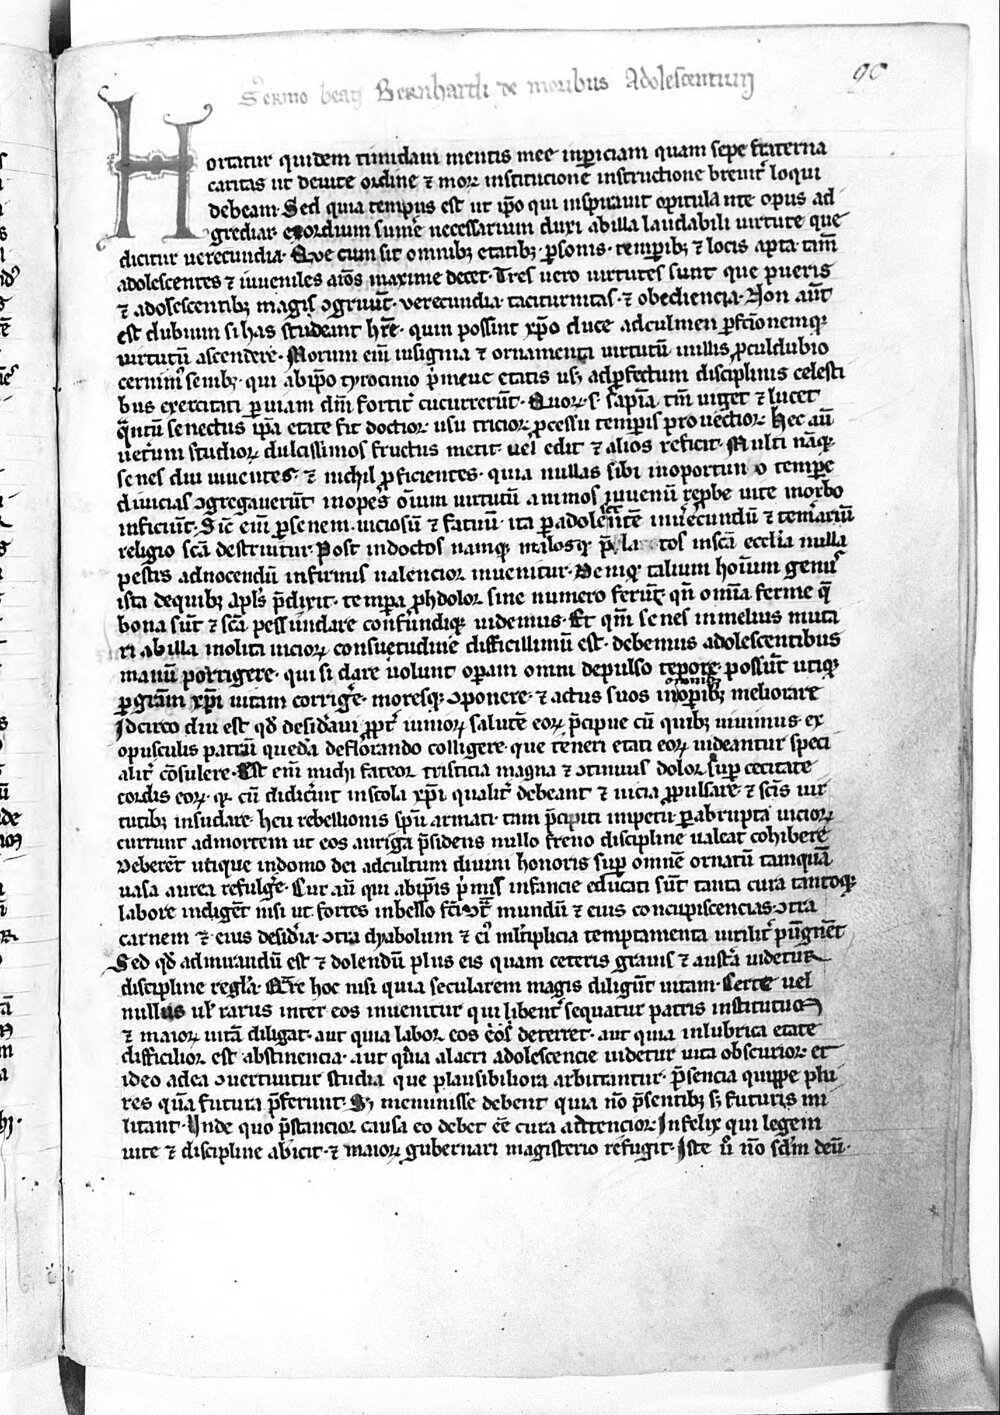 Sermo beati Bernhardi de moribus Adolescentium
90
Hortatur quidem timidam mentis mee inpiciam quam sepe fraterna
caritas ut de vite ordine ⁊ moꝝ institucione instructione breuiť loqui
debeam. Sed quia tempus est ut ip̄o qui inspirauit opitulante opus ad
grediar. exordium sume necessarium duxi ab illa laudabili virtute que
dicitur uerecundia. Que cum sit omnibꝫ etatibꝫ ꝑsonis. temꝑibꝫ ⁊ locis apta. tam̄
adolescentes ⁊ iuueniles aīos maxime decet. Tres uero uirtutes sunt que pueris
⁊ adolescentibꝫ magis ꝯgruūt. verecundia. taciturnitas. ⁊ obediencia. Non aūt
est dubium si has studeant hr̄e. quin possint xp̄o duce ad culmen ꝑfcīonemqꝫ
uirtutū ascendere. Morum eiī insignia ⁊ ornamenta uirtutū in illis ꝓculdubio
cernimꝰ senibꝫ. qui ab ip̄o tyrocinio p̄meue etatis usꝫ ad ꝑfectum disciplinis celesti
bus exercitati ꝑ uiam dn̄i fortiť cucurrerūt. Quoꝝ s̄ sapīa tm̄ uiget ⁊ lucet
q̄ntū senectus ip̄a etate fit doctior. usu tricior. ꝓcessu temꝑis prouectior. Hec aūt
ueteꝝum studioꝝ dulcissimos fructus metit. uel edit ⁊ alios reficit. Multi nāqꝫ
senes diu uiuentes. ⁊ nichil ꝓficientes. quia nullas sibi in oportuno tempe
diuicias ꝯgregauerūt inopes oīum uirtutū animos iuuenū teꝑbe uite morbo
inficiūt. Sic̄ eiī ꝑ senem uiciosū ⁊ fatuū. ita ꝑ adolescētē inuerecundū ⁊ temꝰariū
religio scā destruitur. Post indoctos namqꝫ malosqꝫ p̄latos in scā eccl̄ia nulla
pestis ad nocendū infirmis ualencior inuenitur. Deniqꝫ talium hoīum genꝰ
ista de quibꝫ apl̄s p̄dixit. tempa ꝓh dolor sine numero ferūt. qn̄ omīa ferme q̄
bona sūt ⁊ scā pessundare confundiqꝫ uidemus. Et qm̄ senes in melius muta
ri ab illa inolita uicioꝝ consuetudine difficillimū est. debemus adolescentibus
manū porrigere. qui si dare uolunt opam omni depulso tepore. possūt utiqꝫ
ꝑ grām xp̄i uitam corrigꝰe. moresqꝫ ꝯponere. ⁊ actus suos in opibꝫ meliorare
Idcirco diu est qd̄ desidꝰaui ꝓpt̄ iunioꝝ salutē eoꝝ p̄cipue cū quibꝫ uiuimus. ex
opusculis patrū quedā deflorando colligere. que teneri etati eoꝝ uideantur speci
alit̄ cōsulere. Est eiī michi fateor tristicia magna ⁊ ꝯtinuus dolor suꝑ cecitate
cordis eoꝝ. qꝫ cū didicꝰint in scola xp̄i qualiť debeant ⁊ uicia ꝓpulsare. ⁊ scīs uir
tutibꝫ insudare. heu rebellionis spū armati. tam p̄cipiti impetu ꝑ abrupta uicioꝝ
currunt ad mortem ut eos auriga p̄sidens nullo freno discipline ualeat cohibere
Deberēt utique in domo dei ad cultum diuini honoris suꝑ omnē ornatū tamquā
uasa aurea refulgꝰe. Cur aūt qui ab ipīs p̄mis infancie educati sūt tanta cura tantoqꝫ
labore indigēt nisi ut fortes in bello fc̄i ꝯtra mundū ⁊ eius concupiscencias. ꝯtra
carnem ⁊ eius desidꝰia. ꝯtra dyabolum ⁊ eiꝰ ml̄tiplicia temptamenta uiriliť pugnēt
Sed qd̄ admirandū est ⁊ dolendū plus eis quam ceteris grauis ⁊ austꝰa uidetur
discipline regl̄a. Qꝰre hoc nisi quia secularem magis diligūt uitam. Certe uel
nullus ul̄ rarus inter eos inuenitur qui libentꝰ sequatur patris institutum
⁊ maioꝝ uitā diligat. aut quia labor eos deterret. aut quia in lubrica etate
difficilior est abstinencia. aut quia alacri adolescencie uidetur uita obscurior. et
ideo ad ea ꝯuertuntur studia que plausibiliora arbitrantur. p̄sencia quippe plu
res quā futura p̄ferunt. Sꝫ meminisse debent quia nō p̄sentibꝫ sꝫ futuris mi
litant. Unde quo p̄stancior causa eo debet eē cura adtencior. Infelix qui legem
uite ⁊ discipline abicit. ⁊ maioꝝ gubernari magisterio refugit. Iste ū nō sc̄dm deū.